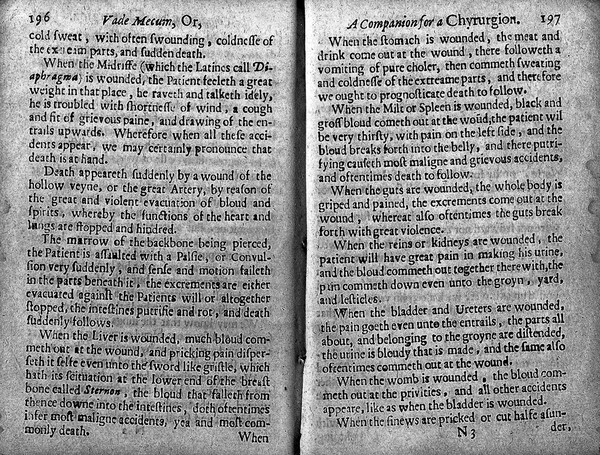 196 Vade Mecum, Or,
cold sweat, with often swounding, coldnesse of
the extreim parts, and sudden death.
When the Midriffe (which the Latines call Di-
aphragma) is wounded, the Patient feeleth a great
weight in that place, he raveth and talketh idely,
he is troubled with shortnesse of wind, a cough
and fit of grievous paine, and drawing of the en-
trails upwards. Wherefore when all these acci-
dents appear, we may certainly pronounce that
death is at hand.
Death appeareth suddenly by a wound of the
hollow veyne, or the great Artery, by reason of
the great and violent evacuation of bloud and
spirits, whereby the functions of the heart and
lungs are stopped and hindred.
The marrow of the backbone being pierced,
the Patient is assaulted with a Palsie, or Convul-
sion very suddenly, and sense and motion faileth
in the parts beneath it, the excrements are either
evacuated against the Patients will or altogether
stopped, the intestines putrifie and rot, and death
suddenly follows.
When the Liver is wounded, much bloud com-
meth out at the wound, and pricking pain disper-
seth it selfe even unto the sword like gristle, which
hath its scituation at the lower end of the breast
bone called Sternon, the bloud that falleth from
thence downe into the intestines, doth oftentimes
infer most maligne accidents, yea and most com-
monly death. When
A Companion for a Chyrurgion. 197
When the stomach is wounded, the meat and
drink come out at the wound, there followeth a
vomiting of pure choler, then commeth sweating
and coldnesse of the extreame parts, and therefore
we ought to prognosticate death to follow.
When the Milt or Spleen is wounded, black and
gross bloud cometh out at the woūd, the patient wil
be very thirsty, with pain on the left side, and the
bloud breaks forth into the belly, and there putri-
fying causeth most maligne and grievous accidents,
and oftentimes death to follow.
When the guts are wounded, the whole body is
griped and pained, the excrements come out at the
wound, whereat also oftentimes the guts break
forth with great violence.
When the reins or kidneys are wounded, the
patient will have great pain in making his urine,
and the bloud commeth out together there with, the
pain commeth down even unto the groyn, yard,
and testicles.
When the bladder and Ureters are wounded,
the pain goeth even unto the entrails, the parts all
about, and belonging to the groyne are distended,
the urine is bloudy that is made, and the same also
oftentimes commeth out at the wound.
When the womb is wounded, the bloud com-
meth out at the privities, and all other accidents
appeare, like as when the bladder is wounded.
When the sinews are pricked or cut halfe asun-
N 3 der,